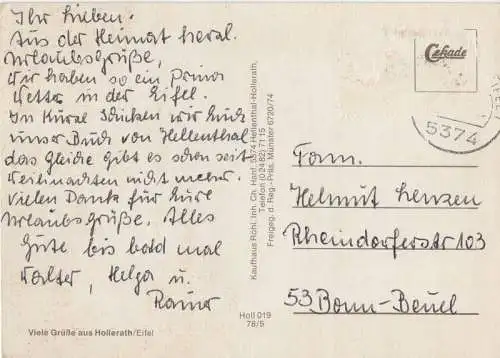 Ihr Lieben.
Aus der Heimat herzl.
Urlaubsgrüße,
Wir haben so ein Prima
Wetter in der Eifel.
In Kürze schicken wir Euch
unser Buch von Hellenthal
das Gleiche gibt es schon seit
Weihnachten nicht mehr.
Vielen Dank für Eure
Urlaubsgrüße. Alles
Gute bis bald mal
Walter, Helga u.
Rainer
Viele Grüße aus Hollerath/Eifel
Kaufhaus Röhl, Inh. Ch. Hanf, 5374 Hellenthal-Hollerath,
Telefon (02482) 7115
Freigeg. d. Reg.-Präs. Münster 6720/74
Holl 019
78/5
Cekade
5374
Fam.
Helmut Lenzen
Rheindorferstr 103
53 Bonn-Beuel